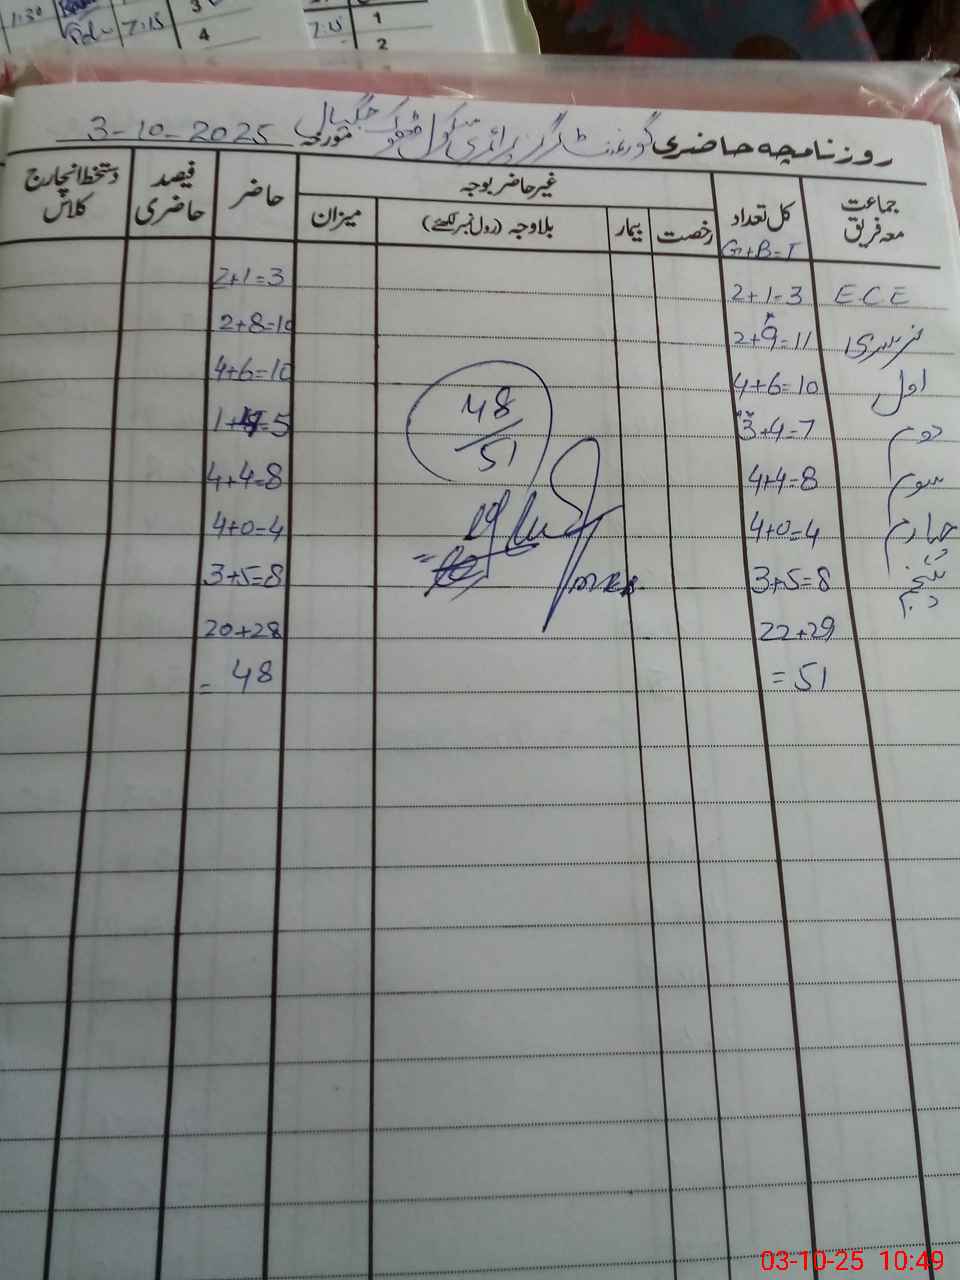 1:30 7:15 3 7:15 1
4 2
روزنامچہ حاضری گورنمنٹ گرلز پرائمری سکول ڈھوک جگیال مورخہ 3-10-2025
جماعت معہ فریق کل تعداد غیر حاضر بوجہ حاضر فیصد حاضری دستخط انچارج کلاس
رخصت بیمار بلاوجہ (رول نمبر لکھئے) میزان
G+B=T
ECE 2+1=3 2+1=3
نرسری 2+9=11 2+8=10
اول 4+6=10 4+6=10
دوم 3+4=7 1+4=5
سوم 4+4=8 4+4=8
چہارم 4+0=4 4+0=4
پنجم 3+5=8 3+5=8
22+29 20+28
=51 =48
48
51
03-10-25 10:49